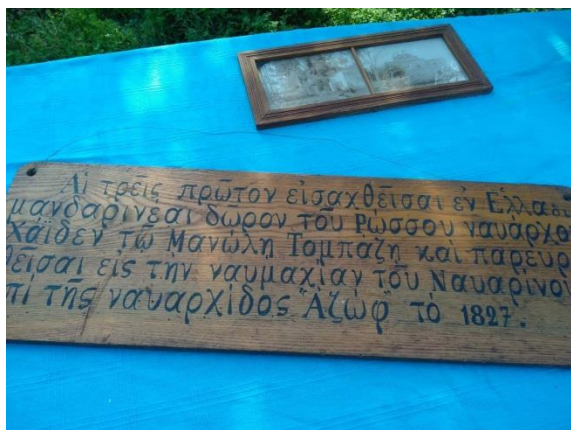 Αἱ τρεῖς πρῶτον εἰσαχθεῖσαι ἐν Ἑλλάδι
μανδαρινέαι δῶρον τοῦ Ρώσσου ναυάρχο
Χάϊδεν τῷ Μανώλη Τομπάζη καὶ παρευρ
θεῖσαι εἰς τὴν ναυμαχίαν τοῦ Ναυαρίνου
πὶ τῆς ναυαρχίδος "Ἀζὼφ" τὸ 1827.